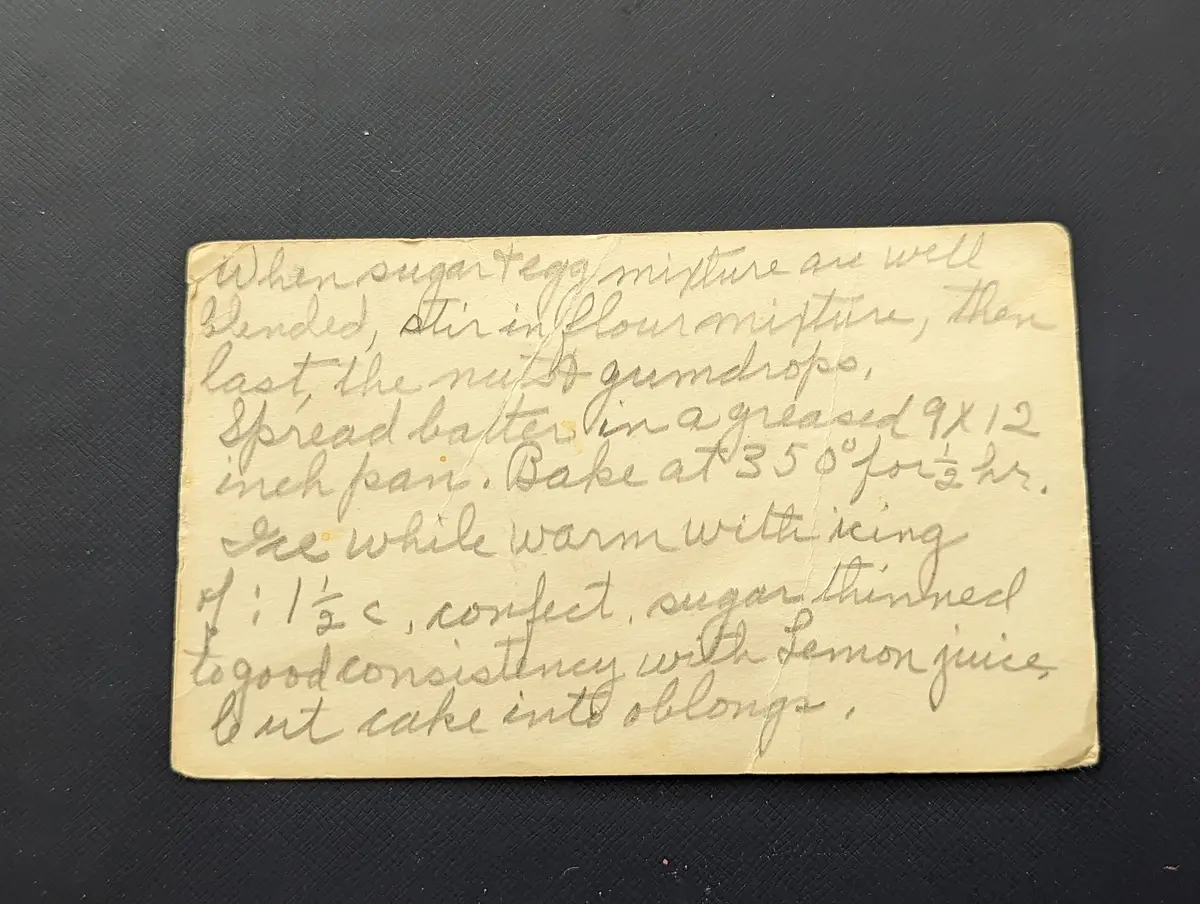 When sugar & egg mixture are well
blended, stir in flour mixture, then
last, the nuts & gumdrops.
Spread batter in a greased 9 X 12
inch pan. Bake at 350° for ½ hr.
Ice while warm with icing
of : 1½ c. confect. sugar thinned
to good consistency with Lemon juice.
Cut cake into oblongs.